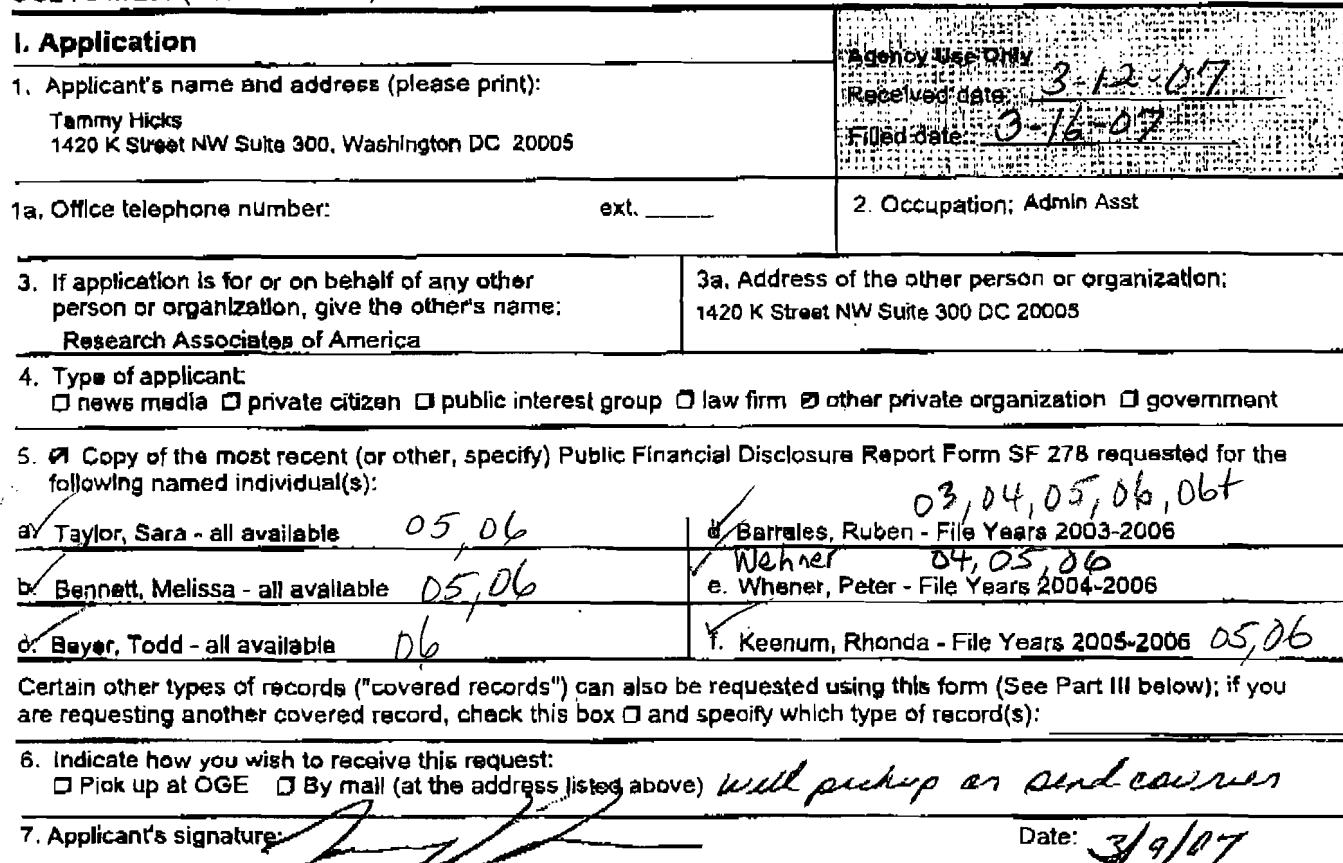 I. Application
Agency Use Only
Received date: 3-12-07
Filled date: 3-16-07
1. Applicant's name and address (please print):
Tammy Hicks
1420 K Street NW Suite 300, Washington DC 20005
1a. Office telephone number: ext. ____
2. Occupation: Admin Asst
3. If application is for or on behalf of any other
person or organization, give the other's name:
Research Associates of America
3a. Address of the other person or organization:
1420 K Street NW Suite 300 DC 20005
4. Type of applicant:
☐ news media ☐ private citizen ☐ public interest group ☐ law firm ☑ other private organization ☐ government
5. ☑ Copy of the most recent (or other, specify) Public Financial Disclosure Report Form SF 278 requested for the
following named individual(s):
a. Taylor, Sara - all available 05, 06
b. Bennett, Melissa - all available 05, 06
c. Beyer, Todd - all available 06
03, 04, 05, 06, 06t
d. Barrales, Ruben - File Years 2003-2006
Wehner 04, 05, 06
e. Whener, Peter - File Years 2004-2006
f. Keenum, Rhonda - File Years 2005-2006 05, 06
Certain other types of records ("covered records") can also be requested using this form (See Part III below); if you
are requesting another covered record, check this box ☐ and specify which type of record(s):
6. Indicate how you wish to receive this request:
☐ Pick up at OGE ☐ By mail (at the address listed above) will pickup or send courier
7. Applicant's signature: Date: 3/9/07